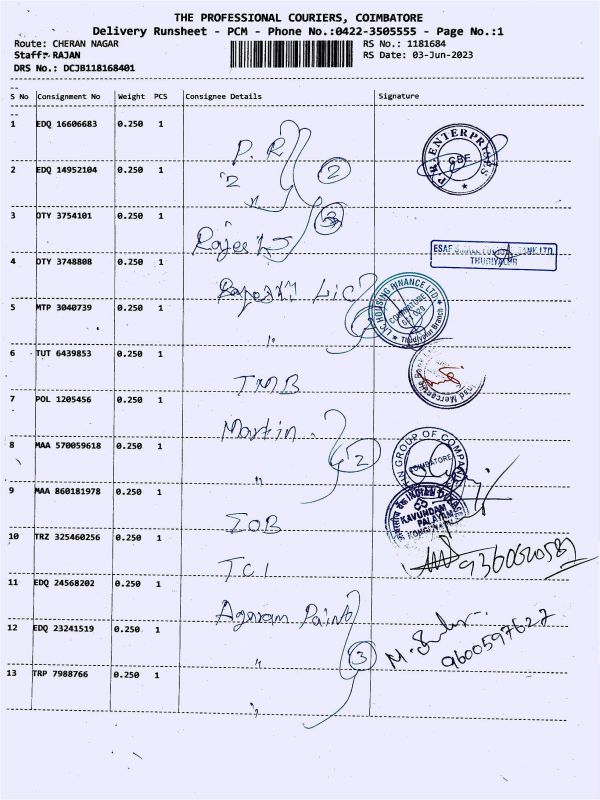 THE PROFESSIONAL COURIERS, COIMBATORE
Delivery Runsheet - PCM - Phone No.:0422-3505555 - Page No.:1
Route: CHERAN NAGAR RS No.: 1181684
Staff: RAJAN RS Date: 03-Jun-2023
DRS No.: DCJB118168401
S No Consignment No Weight PCS Consignee Details Signature
1 EDQ 16606683 0.250 1 P.R
P.R. ENTERPRISES CBE
2 EDQ 14952104 0.250 1 2
3 OTY 3754101 0.250 1
4 OTY 3748808 0.250 1 LIC
THUDIYALUR
LIC HOUSING FINANCE LTD. COIMBATORE Thudiyalur Branch
5 MTP 3040739 0.250 1 "
6 TUT 6439853 0.250 1 TMB
7 POL 1205456 0.250 1 Martin
8 MAA 570059618 0.250 1 " 2
GROUP OF COMPAN COIMBATORE
9 MAA 860181978 0.250 1 IOB
INDIAN OVERSEAS KAVUNDAM PALAYAM
10 TRZ 325460256 0.250 1 TCI
9360620587
11 EDQ 24568202 0.250 1 Agaram Paints
12 EDQ 23241519 0.250 1 " 3
9600597627
13 TRP 7988766 0.250 1 "